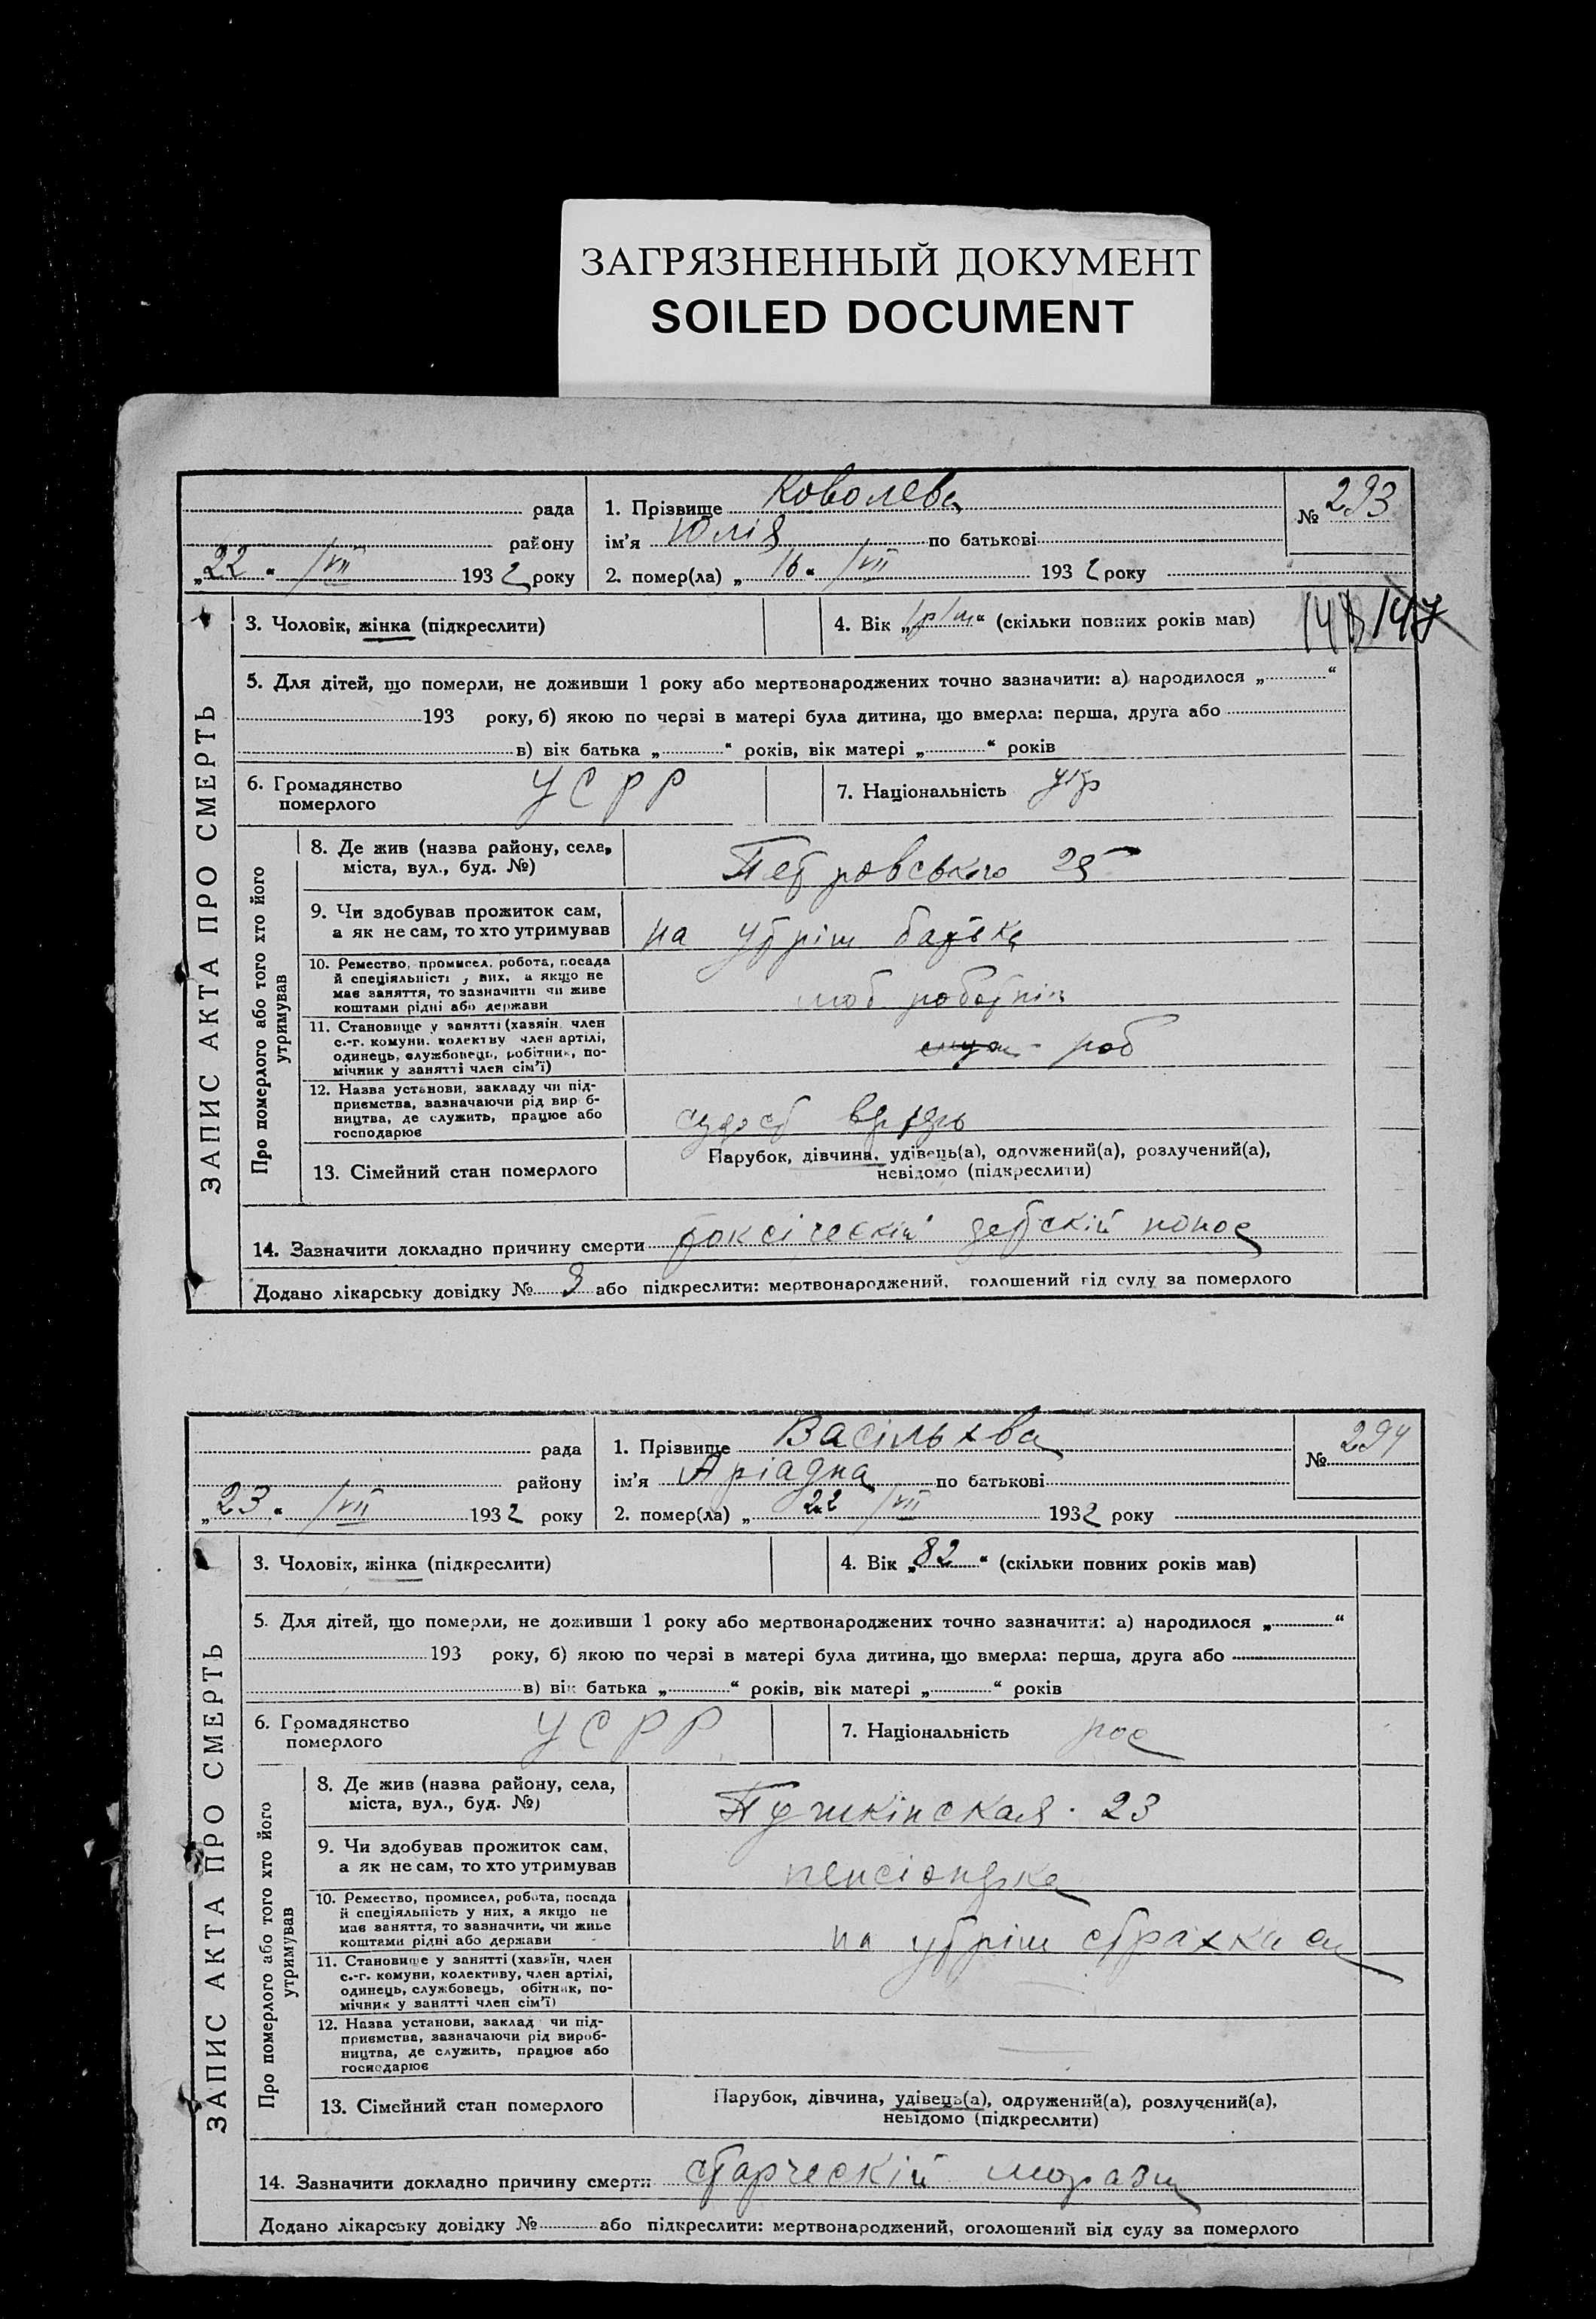 ЗАГРЯЗНЕННЫЙ ДОКУМЕНТ
SOILED DOCUMENT
ЗАПИС АКТА ПРО СМЕРТЬ
рада
1. Прізвище Коволева
№ 293
району
ім'я Юлія по батькові
„22“ /VII 1932 року
2. помер(ла) „16“ /VII 1932 року
3. Чоловік, жінка (підкреслити)
4. Вік „1р/м“ (скільки повних років мав)
147
5. Для дітей, що померли, не доживши 1 року або мертвонароджених точно зазначити: а) народилося „ “
193 року, б) якою по черзі в матері була дитина, що вмерла: перша, друга або
в) вік батька „ “ років, вік матері „ “ років
6. Громадянство
померлого
УСРР
7. Національність укр
Про померлого або того хто його
утримував
8. Де жив (назва району, села,
міста, вул., буд. №)
Петровського 25
9. Чи здобував прожиток сам,
а як не сам, то хто утримував
на утрім батька
10. Ремество, промисел, робота, посада
й спеціяльність у них, а якщо не
має заняття, то зазначити чи живе
коштами рідні або держави
11. Становище у занятті (хазяїн, член
с.-г. комуни, колективу член артілі,
одинець, службовець, робітник, по-
мічник у занятті член сім'ї)
роб
12. Назва установи, закладу чи під-
приємства, зазначаючи рід вироб-
ництва, де служить, працює або
господарює
13. Сімейний стан померлого
Парубок, дівчина, удівець(а), одружений(а), розлучений(а),
невідомо (підкреслити)
14. Зазначити докладно причину смерти токсіческій детскій понос
Додано лікарську довідку № або підкреслити: мертвонароджений, голошений від суду за померлого
ЗАПИС АКТА ПРО СМЕРТЬ
рада
1. Прізвище Васількова
№ 294
району
ім'я Аріадна по батькові
„23“ /VII 1932 року
2. помер(ла) „22 /VII 1932 року
3. Чоловік, жінка (підкреслити)
4. Вік „82“ (скільки повних років мав)
5. Для дітей, що померли, не доживши 1 року або мертвонароджених точно зазначити: а) народилося „ “
193 року, б) якою по черзі в матері була дитина, що вмерла: перша, друга або
в) вік батька „ “ років, вік матері „ “ років
6. Громадянство
померлого
УСРР
7. Національність рос
Про померлого або того хто його
утримував
8. Де жив (назва району, села,
міста, вул., буд. №)
Пушкінская 23
9. Чи здобував прожиток сам,
а як не сам, то хто утримував
пенсіонерка
10. Ремество, промисел, робота, посада
й спеціяльність у них, а якщо не
має заняття, то зазначити, чи живе
коштами рідні або держави
на утрім страхкаси
11. Становище у занятті (хазяїн, член
с.-г. комуни, колективу, член артілі,
одинець, службовець, обітник, по-
мічник у занятті член сім'ї)
12. Назва установи, заклад чи під-
приємства, зазначаючи рід вироб-
ництва, де служить, працює або
господарює
13. Сімейний стан померлого
Парубок, дівчина, удівець(а), одружений(а), розлучений(а),
невідомо (підкреслити)
14. Зазначити докладно причину смерти старческій маразм
Додано лікарську довідку № або підкреслити: мертвонароджений, оголошений від суду за померлого